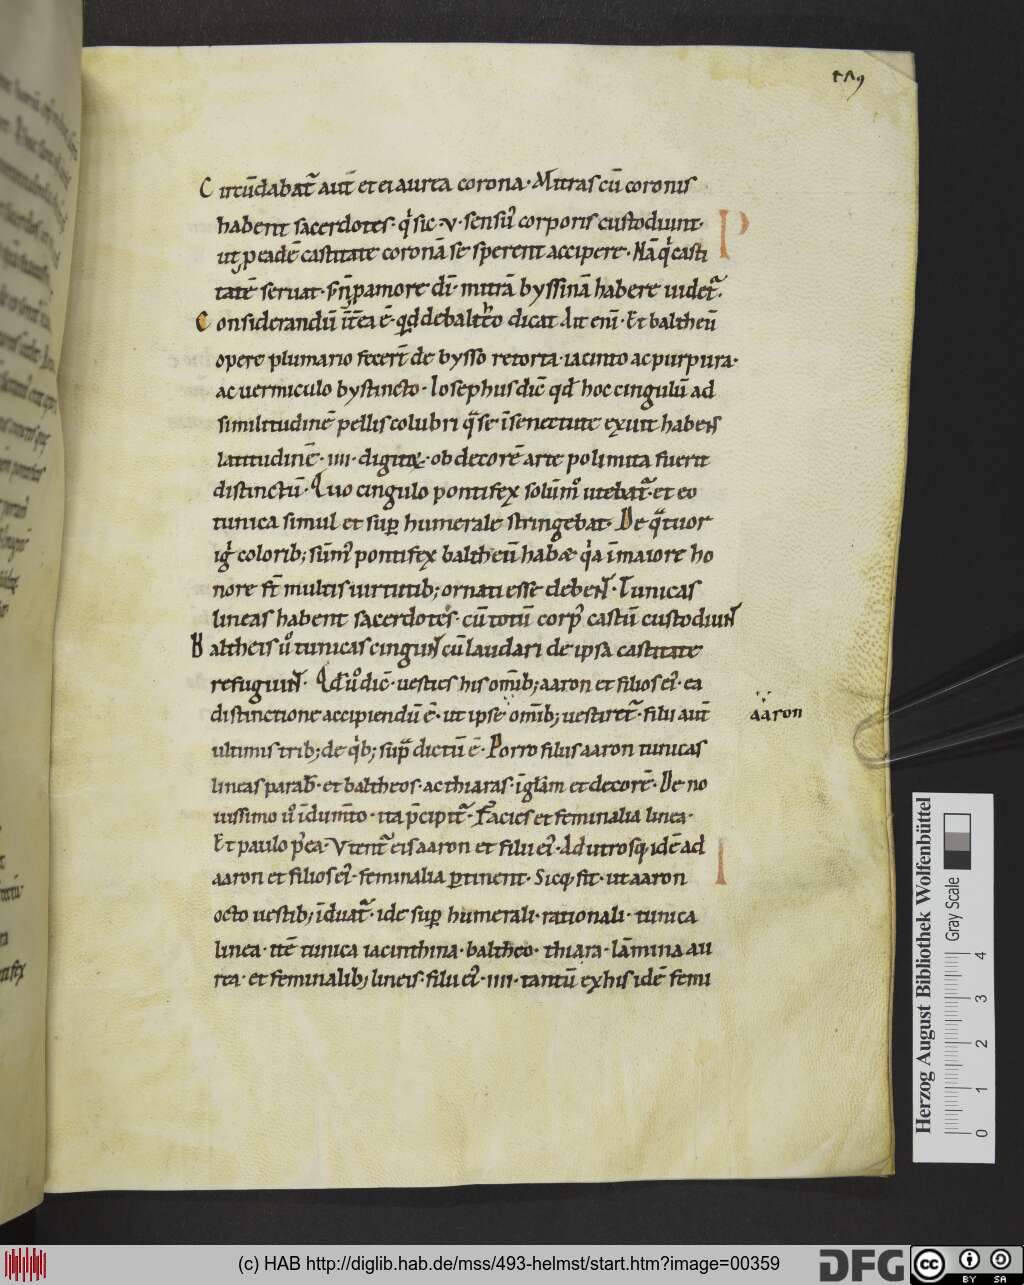 179
Circu̅dabat᷑ aut̅ et ei aurea corona· Mitras cu̅ coronis
habent sacerdotes· q'sic ·v· sensus corporis custodiunt·
ut p eade̅ castitate corona̅ se sperent accipere· Na̅ q' casti
tate̅ seruat· s; n̅ p amore di̅· mitra̅ byssina̅ habere uidet᷑.
Considerandu̅ ite̅ ea e̅· qd̅ de balteo dicat. Ait eni̅· Et baltheu̅
opere plumario fecert̅ de bysso retorta· iacinto ac purpura·
ac uermiculo bystincto· Iosephus dic̅ qd̅ hoc cingulu̅ ad
similitudine̅ pellis colubri q̅ se i̅ senectute exuit habens
latitudine̅· iiii· digitoꝝ· ob decore̅ arte polimita fuerit
distinctu̅· Quo cingulo pontifex solu̅mo utebat᷑· et eo
tunica simul et sup̲ humerale stringebat· De q̅tuor
ig' colorib; su̅m' pontifex baltheu̅ habæ q'a i̅ maiore ho
nore st̅ multis uirtutib; ornati esse debent· Tunicas
lineas habent sacerdotes· cu̅ totu̅ corp' castu̅ custodiunt
Baltheis u° tunicas cingunt cu̅ laudari de ipsa castitate
refugiunt· Qd̅ u° dic̅· uesties his om̅ib; aaron et filios ei'· ea
distinctione accipiendu̅ e̅· ut ipse om̅ib; uestiret᷑· filii aut̅
aaron
ultimis trib; de q'b; sup̅ dictu̅ e̅· Porro filiis aaron tunicas
lineas parab̅· et baltheos· ac thiaras· i̅ gla̅m et decore̅· De no
uissimo u° i̅dum̅to· ita p̅cipit᷑· Facies et feminalia linea·
Et paulo p'ea· Vtent᷑ eis aaron et filii ei'· Ad utrosq; ide̅ ad
aaron et filios ei'· feminalia p̲tinent· Sicq; fit· ut aaron
octo uestib; i̅duat᷑· ide sup̲ humerali· rationali· tunica
linea· ite̅ tunica iacinthina· baltheo· thiara· la̅mina au
rea· et feminalib; lineis· filii ei'· iiii· tantu̅ ex his ide̅ femi
Herzog August Bibliothek Wolfenbüttel
Gray Scale
0 1 2 3 4
(c) HAB http://diglib.hab.de/mss/493-helmst/start.htm?image=00359
DFG
cc BY SA